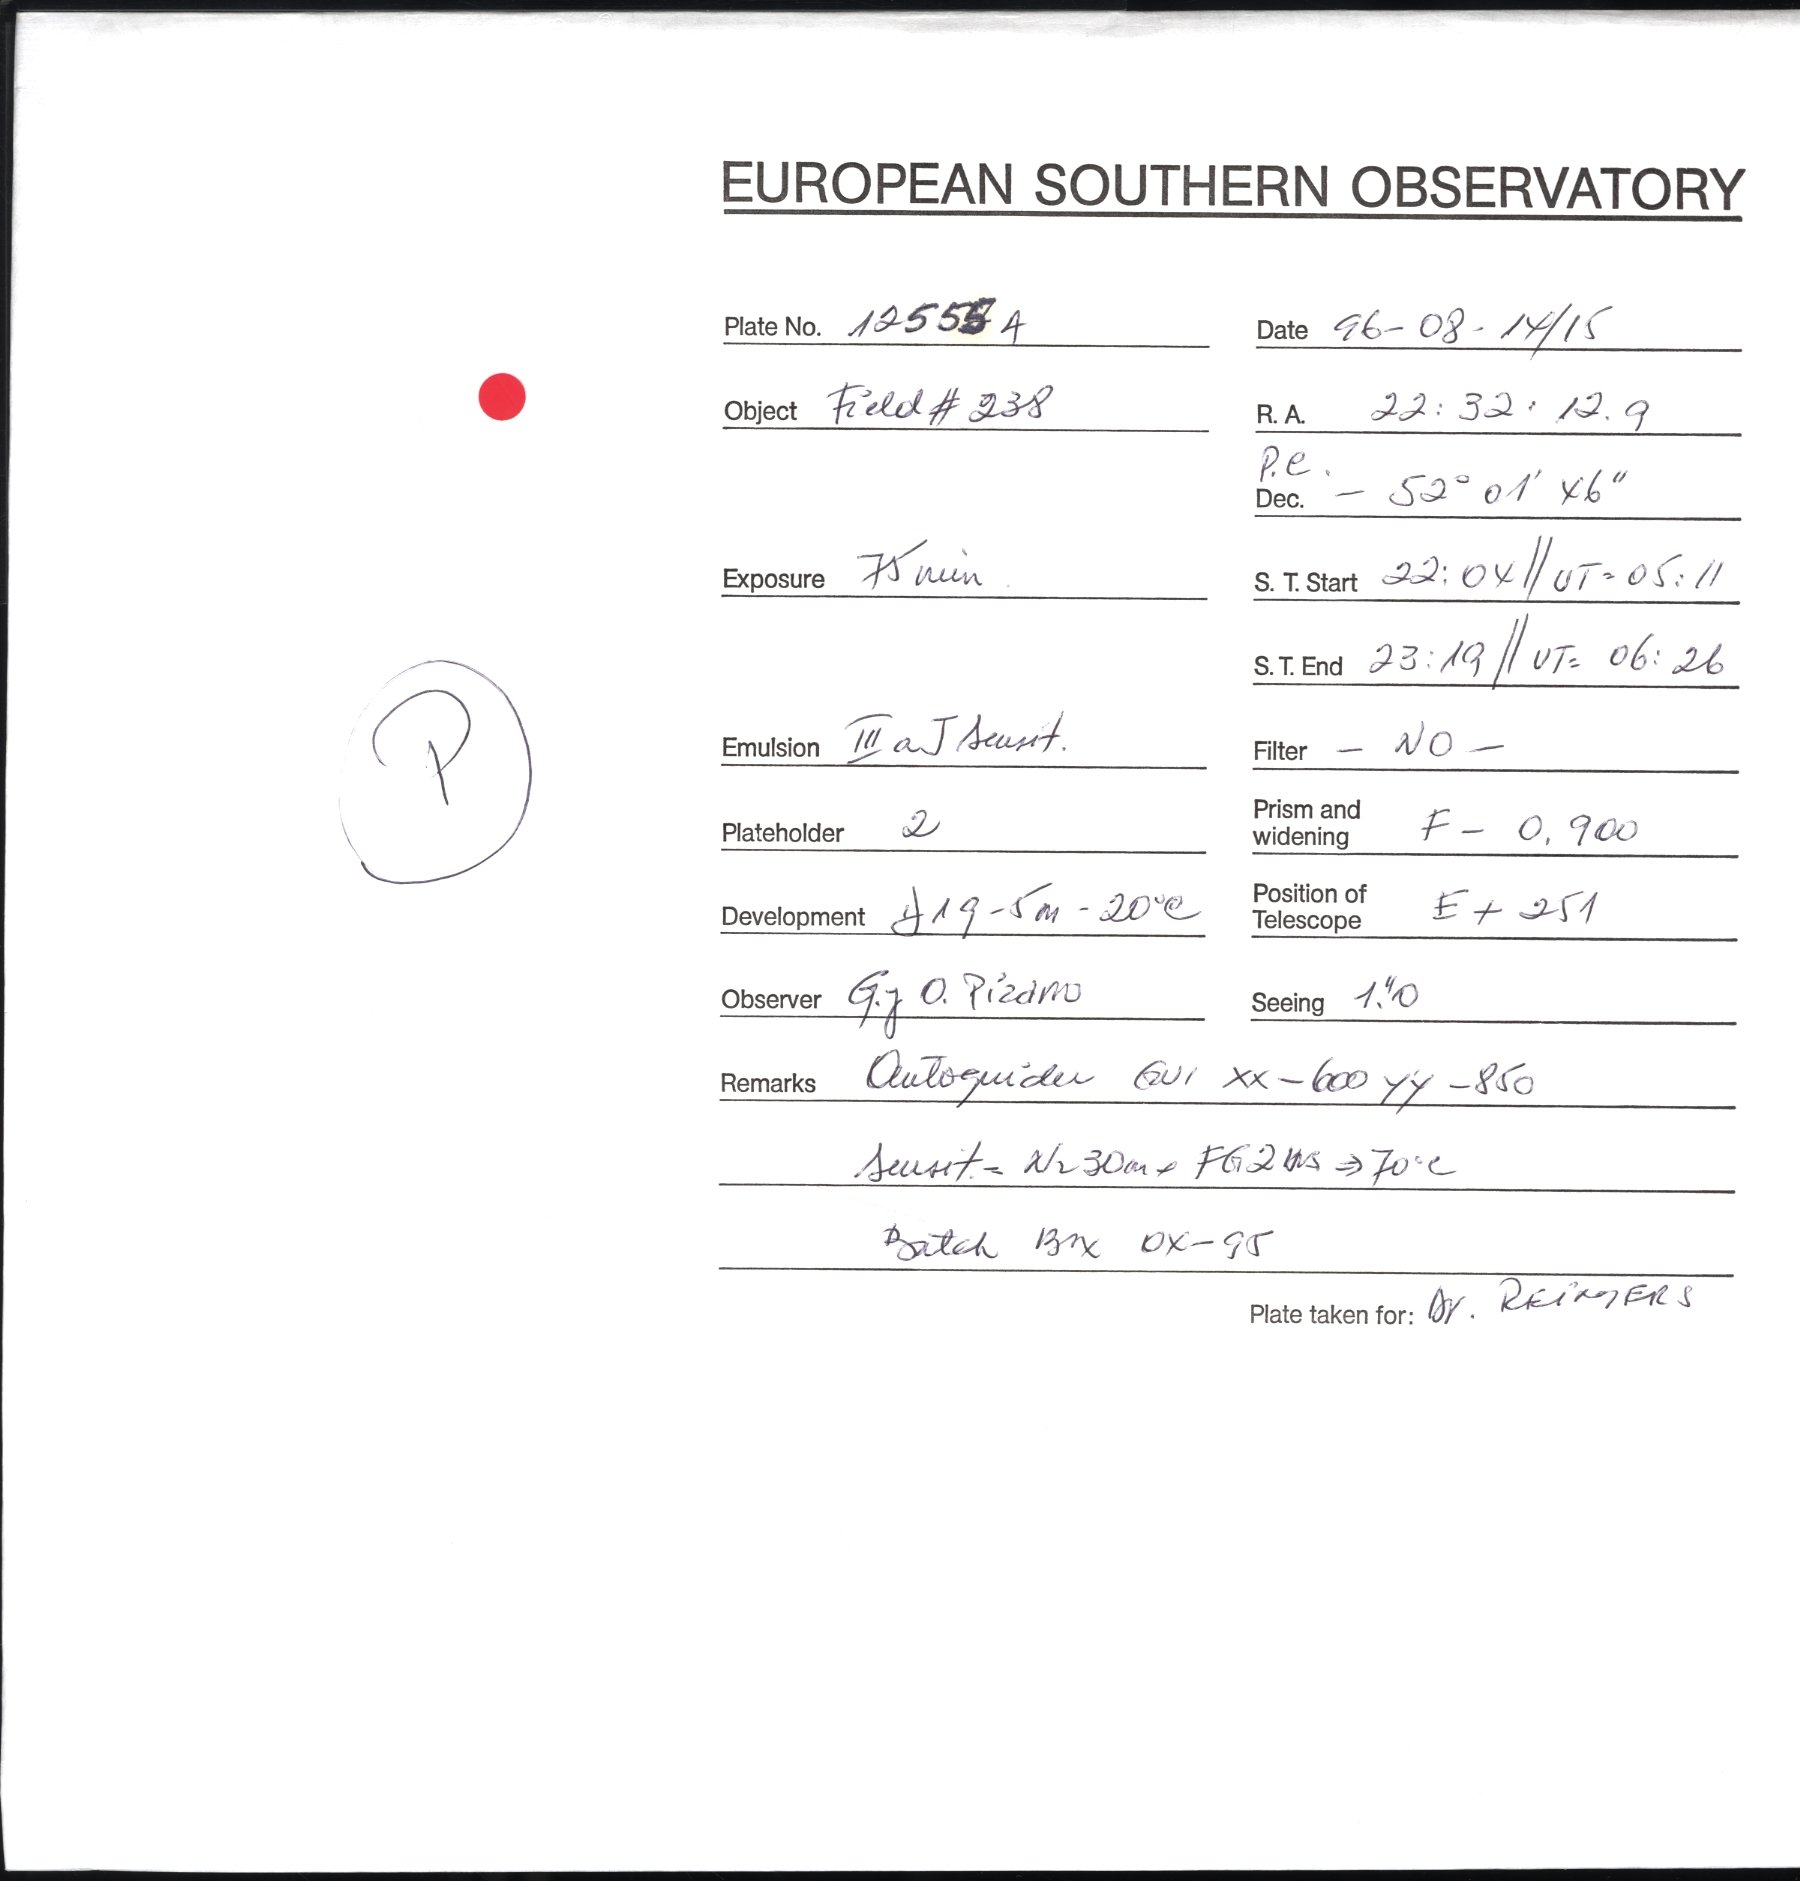 EUROPEAN SOUTHERN OBSERVATORY
Plate No. 12555 A
Date 96-08-14/15
Object Field # 238
R. A. 22:32:12.9
P.e.
Dec. - 52° 01' 46"
Exposure 75 min
S. T. Start 22:04 // UT= 05:11
S. T. End 23:19 // UT= 06:26
P
Emulsion III a J Sensit.
Filter - NO -
Plateholder 2
Prism and widening F - 0,900
Development J 19 - 5m - 20°C
Position of Telescope E + 251
Observer G. y O. Pizarro
Seeing 1."0
Remarks Autoguider GUI XX-600 YY-850
Sensit = N2 30m + FG 2 hs => 70°C
Batch Box 0X-95
Plate taken for: Dr. REIMERS